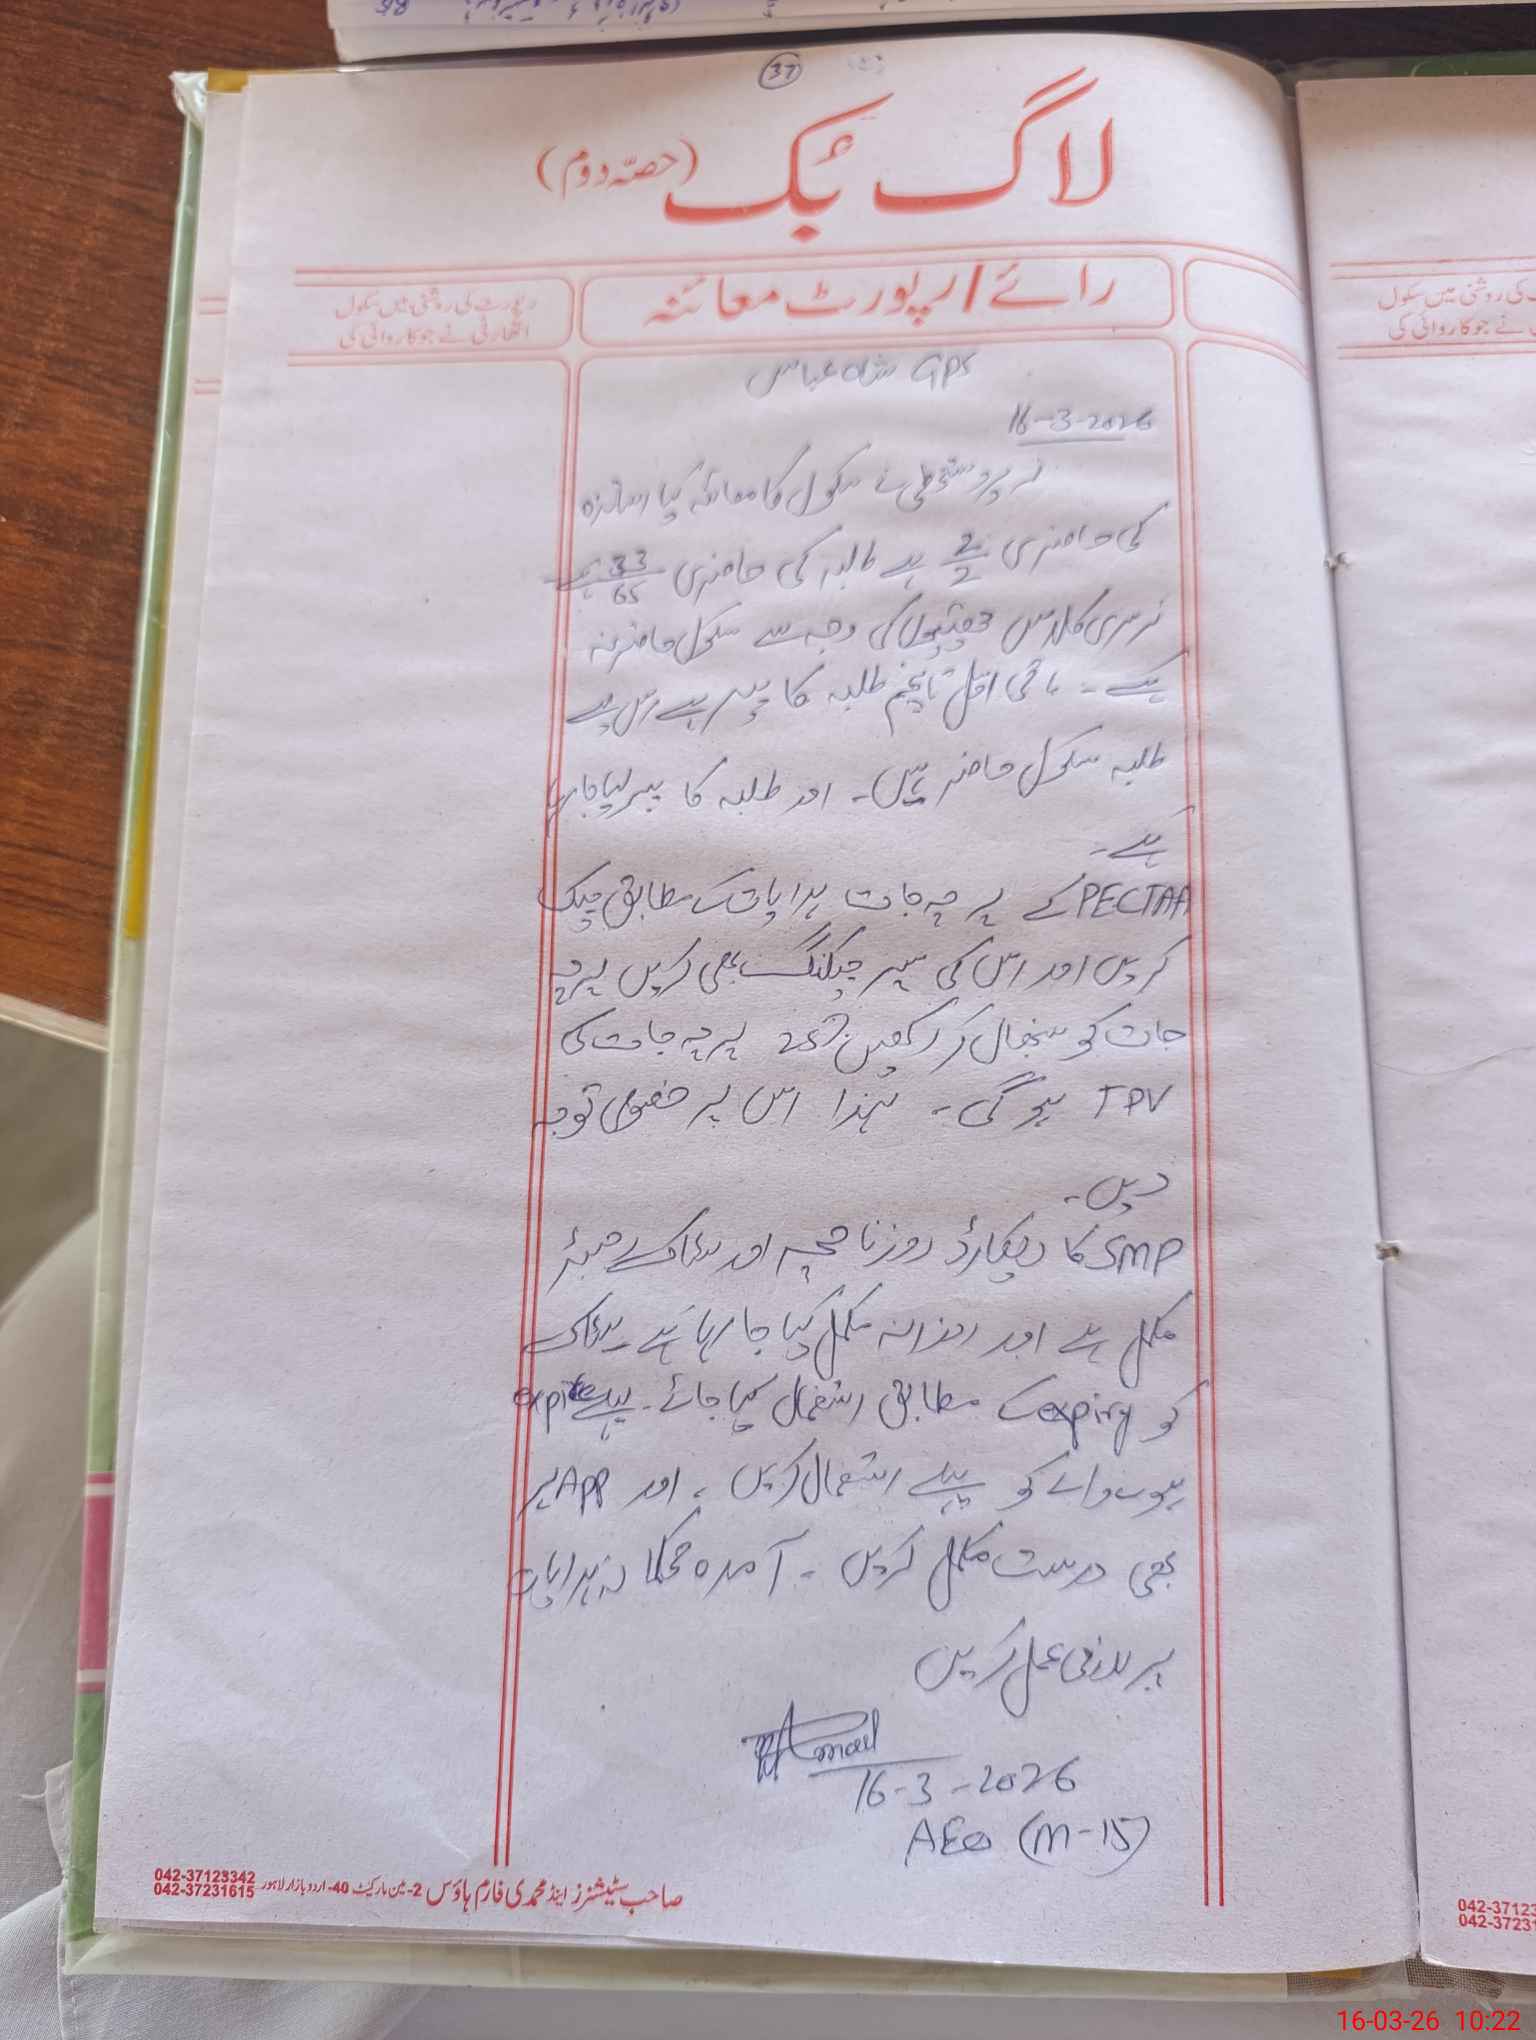 37
لاگ بُک (حصّہ دوم)
رائے / رپورٹ معائنہ
رپورٹ کی روشنی میں سکول
اتھارٹی نے جو کاروائی کی
GPS شاہ عباس
16-3-2026
زیر دستخطی نے سکول کا معائنہ کیا اساتذہ
کی حاضری 2/2 ہے طلبہ کی حاضری 33/65 ہے
نرسری کلاس چھٹیوں کی وجہ سے سکول حاضر نہ
ہے ۔ باقی اول تا پنجم طلبہ کا پیپر ہے اس لیے
طلبہ سکول حاضر ہیں ۔ اور طلبہ کا پیپر لیا جا رہا
ہے ۔
PECTAA کے پرچہ جات ہدایات کے مطابق چیک
کریں اور اس کی چیکنگ بھی کریں پرچہ
جات کو سنبھال کر رکھیں 25% پرچہ جات کی
TPV ہو گی ۔ لہذا اس پر خصوصی توجہ
دیں ۔
SMP کا ریکارڈ روزنامچہ اور
مکمل ہے اور روزانہ مکمل کیا جا رہا ہے
کو expiry کے مطابق استعمال کیا جائے ۔ پہلے expire
ہونے والے کو پہلے استعمال کریں ، اور APP پر
بھی درست مکمل کریں ۔ آمدہ محکمانہ ہدایات
پر لازمی عمل کریں
16-3-2026
AEO (M-15)
صاحب سٹیشنرز اینڈ محمدی فارم ہاؤس 2-مین مارکیٹ 40-اردو بازار لاہور
042-37123342
042-37231615
16-03-26 10:22